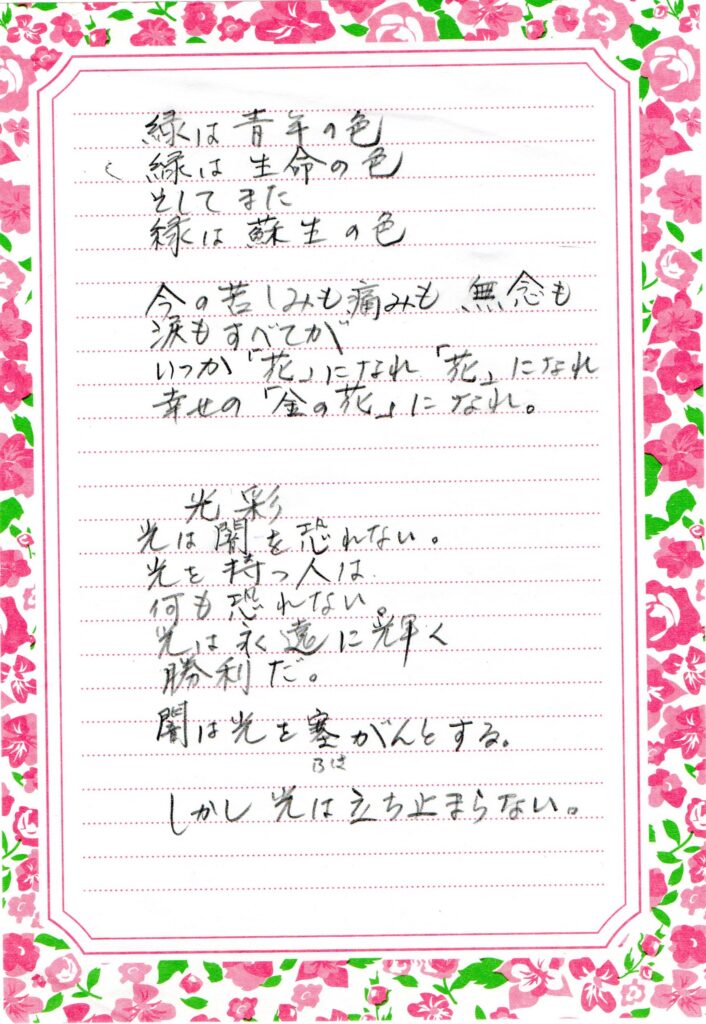 緑は青年の色
緑は生命の色
そしてまた
緑は蘇生の色
今の苦しみも痛みも 無念も
涙もすべてが
いつか「花」になれ「花」になれ
幸せの「金の花」になれ。
光彩
光は闇を恐れない。
光を持つ人は
何も恐れない。
光は永遠に輝く
勝利だ。
闇は光を塞がんとする。
ふさ
しかし光は立ち止まらない。